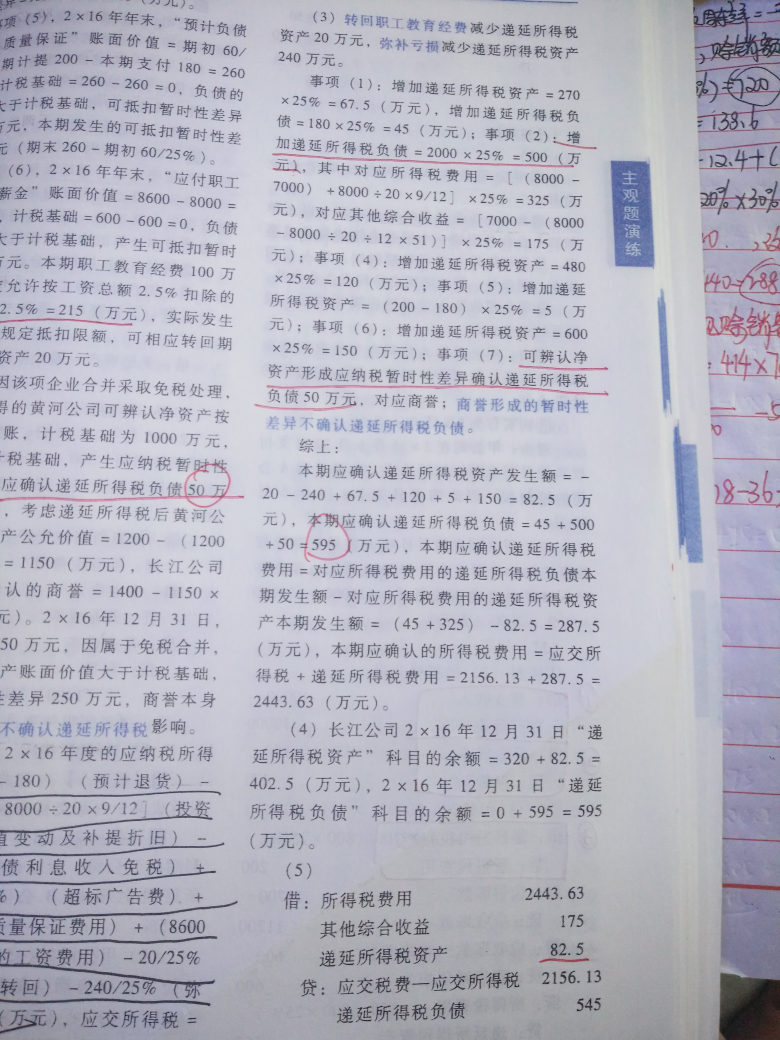 项(5),2×16年年末,“预计负债
质量保证”账面价值=期初60/
期计提200-本期支付180=260
计税基础=260-260=0,负债的
大于计税基础,可抵扣暂时性差异
万元,本期发生的可抵扣暂时性差
元(期末260-期初60/25%)。
(6),2×16年年末,“应付职工
薪金”账面价值=8600-8000=
,计税基础=600-600=0,负债
大于计税基础,产生可抵扣暂时
万元。本期职工教育经费100万
允许按工资总额2.5%扣除的
2.5%=215(万元),实际发生
规定抵扣限额,可相应转回期
资产20万元。
因该项企业合并采取免税处理,
得的黄河公司可辨认净资产按
账,计税基础为1000万元,
税基础,产生应纳税暂时性
应确认递延所得税负债50万
,考虑递延所得税后黄河公
产公允价值=1200-(1200
=1150(万元),长江公司
认的商誉=1400-1150×
元)。2×16年12月31日,
50万元,因属于免税合并,
产账面价值大于计税基础,
性差异250万元,商誉本身
不确认递延所得税影响。
2×16年度的应纳税所得
-180)(预计退货)-
8000÷20×9/12](投资
值变动及补提折旧)-
债利息收入免税)+
%)(超标广告费)+
质量保证费用)+(8600
的工资费用)-20/25%
转回)-240/25%(弥
(万元),应交所得税=
(3)转回职工教育经费减少递延所得税
资产20万元,弥补亏损减少递延所得税资产
240万元。
事项(1):增加递延所得税资产=270
×25%=67.5(万元),增加递延所得税负
债=180×25%=45(万元);事项(2):增
加递延所得税负债=2000×25%=500(万
元),其中对应所得税费用=[(8000-
7000)+8000÷20×9/12]×25%=325(万
元),对应其他综合收益=[7000-(8000
-8000÷20÷12×51)]×25%=175(万
元);事项(4):增加递延所得税资产=480
×25%=120(万元);事项(5):增加递延
所得税资产=(200-180)×25%=5(万
元);事项(6):增加递延所得税资产=600
×25%=150(万元);事项(7):可辨认净
资产形成应纳税暂时性差异确认递延所得税
负债50万元,对应商誉;商誉形成的暂时性
差异不确认递延所得税负债。
综上:
本期应确认递延所得税资产发生额=-
20-240+67.5+120+5+150=82.5(万
元),本期应确认递延所得税负债=45+500
+50=595(万元),本期应确认递延所得税
费用=对应所得税费用的递延所得税负债本
期发生额-对应所得税费用的递延所得税资
产本期发生额=(45+325)-82.5=287.5
(万元),本期应确认的所得税费用=应交所
得税+递延所得税费用=2156.13+287.5=
2443.63(万元)。
(4)长江公司2×16年12月31日“递
延所得税资产”科目的余额=320+82.5=
402.5(万元),2×16年12月31日“递延
所得税负债”科目的余额=0+595=595
(万元)。
(5)
借:所得税费用 2443.63
其他综合收益 175
递延所得税资产 82.5
贷:应交税费—应交所得税 2156.13
递延所得税负债 545
主观题演练
=720
=138.6
-12.4+
20%×30%
288
赊销
=414×
18-36